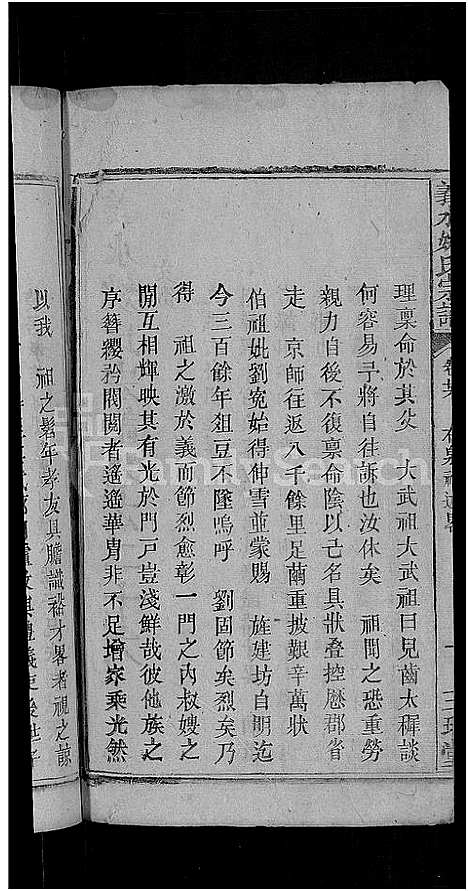 義水姚氏宗譜
理稟命於其父　大武祖大武祖曰兒齒太穉談
何容易乎將自往訴也汝休矣　祖聞之恐重勞
親力自後不復稟命陰以己名具狀叠控歷郡省
走　京師往返八千餘里足繭重披艱辛萬狀
伯祖妣劉寃始得伸雪並蒙賜　旌建坊自明迄
今三百餘年俎豆不墜嗚呼　劉固節矣烈矣乃
得　祖之激於義而節烈愈彰一門之內叔嫂之
間互相輝映其有光於門戶豈淺鮮哉彼他族之
序簪纓矜閥閱者遙遙華胄非不足增家乘光然
以我　祖之髫年孝友具膽識裕才畧者視之諒
FamilySearch